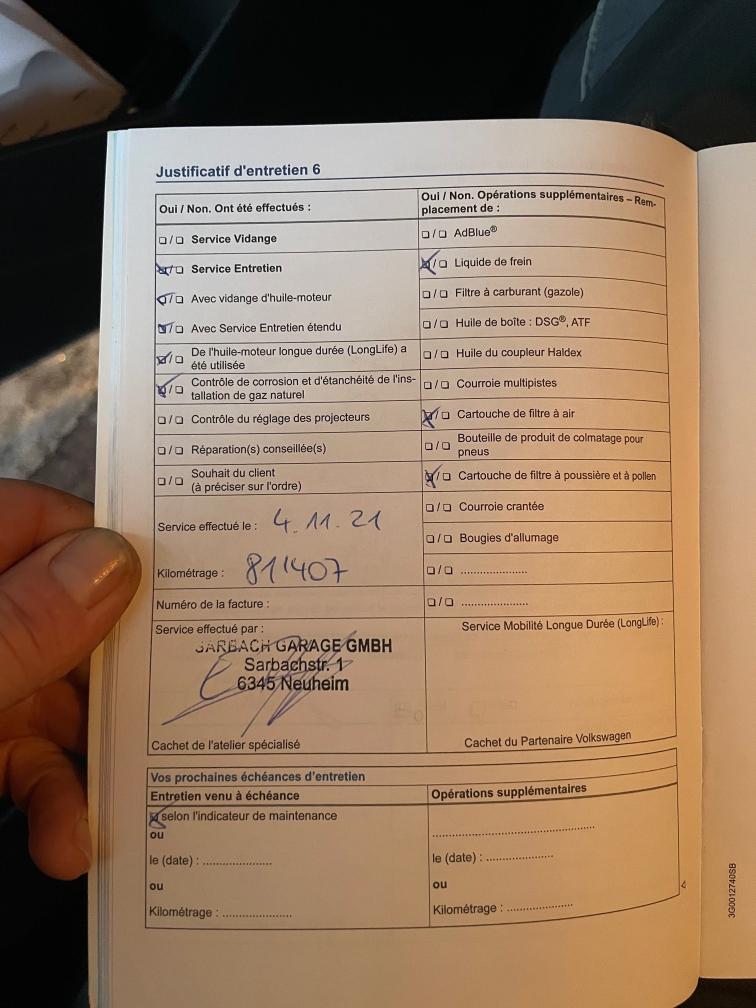 Justificatif d'entretien 6
Oui / Non. Ont été effectués :
☐ / ☐ Service Vidange
☒ / ☐ Service Entretien
☒ / ☐ Avec vidange d'huile-moteur
☒ / ☐ Avec Service Entretien étendu
☒ / ☐ De l'huile-moteur longue durée (LongLife) a
été utilisée
☒ / ☐ Contrôle de corrosion et d'étanchéité de l'ins-
tallation de gaz naturel
☐ / ☐ Contrôle du réglage des projecteurs
☐ / ☐ Réparation(s) conseillée(s)
☐ / ☐ Souhait du client
(à préciser sur l'ordre)
Service effectué le : 4.11.21
Kilométrage : 811407
Numéro de la facture :
Service effectué par :
SARBACH GARAGE GMBH
Sarbachstr. 1
6345 Neuheim
Cachet de l'atelier spécialisé
Oui / Non. Opérations supplémentaires – Rem-
placement de :
☐ / ☐ AdBlue®
☒ / ☐ Liquide de frein
☐ / ☐ Filtre à carburant (gazole)
☐ / ☐ Huile de boîte : DSG®, ATF
☐ / ☐ Huile du coupleur Haldex
☐ / ☐ Courroie multipistes
☒ / ☐ Cartouche de filtre à air
☐ / ☐ Bouteille de produit de colmatage pour
pneus
☒ / ☐ Cartouche de filtre à poussière et à pollen
☐ / ☐ Courroie crantée
☐ / ☐ Bougies d'allumage
☐ / ☐ ......................
☐ / ☐ ......................
Service Mobilité Longue Durée (LongLife) :
Cachet du Partenaire Volkswagen
Vos prochaines échéances d'entretien
Entretien venu à échéance
☒ selon l'indicateur de maintenance
ou
le (date) : ......................
ou
Kilométrage : ......................
Opérations supplémentaires
......................................................
le (date) : ......................
ou
Kilométrage : ......................
3G0012740SB